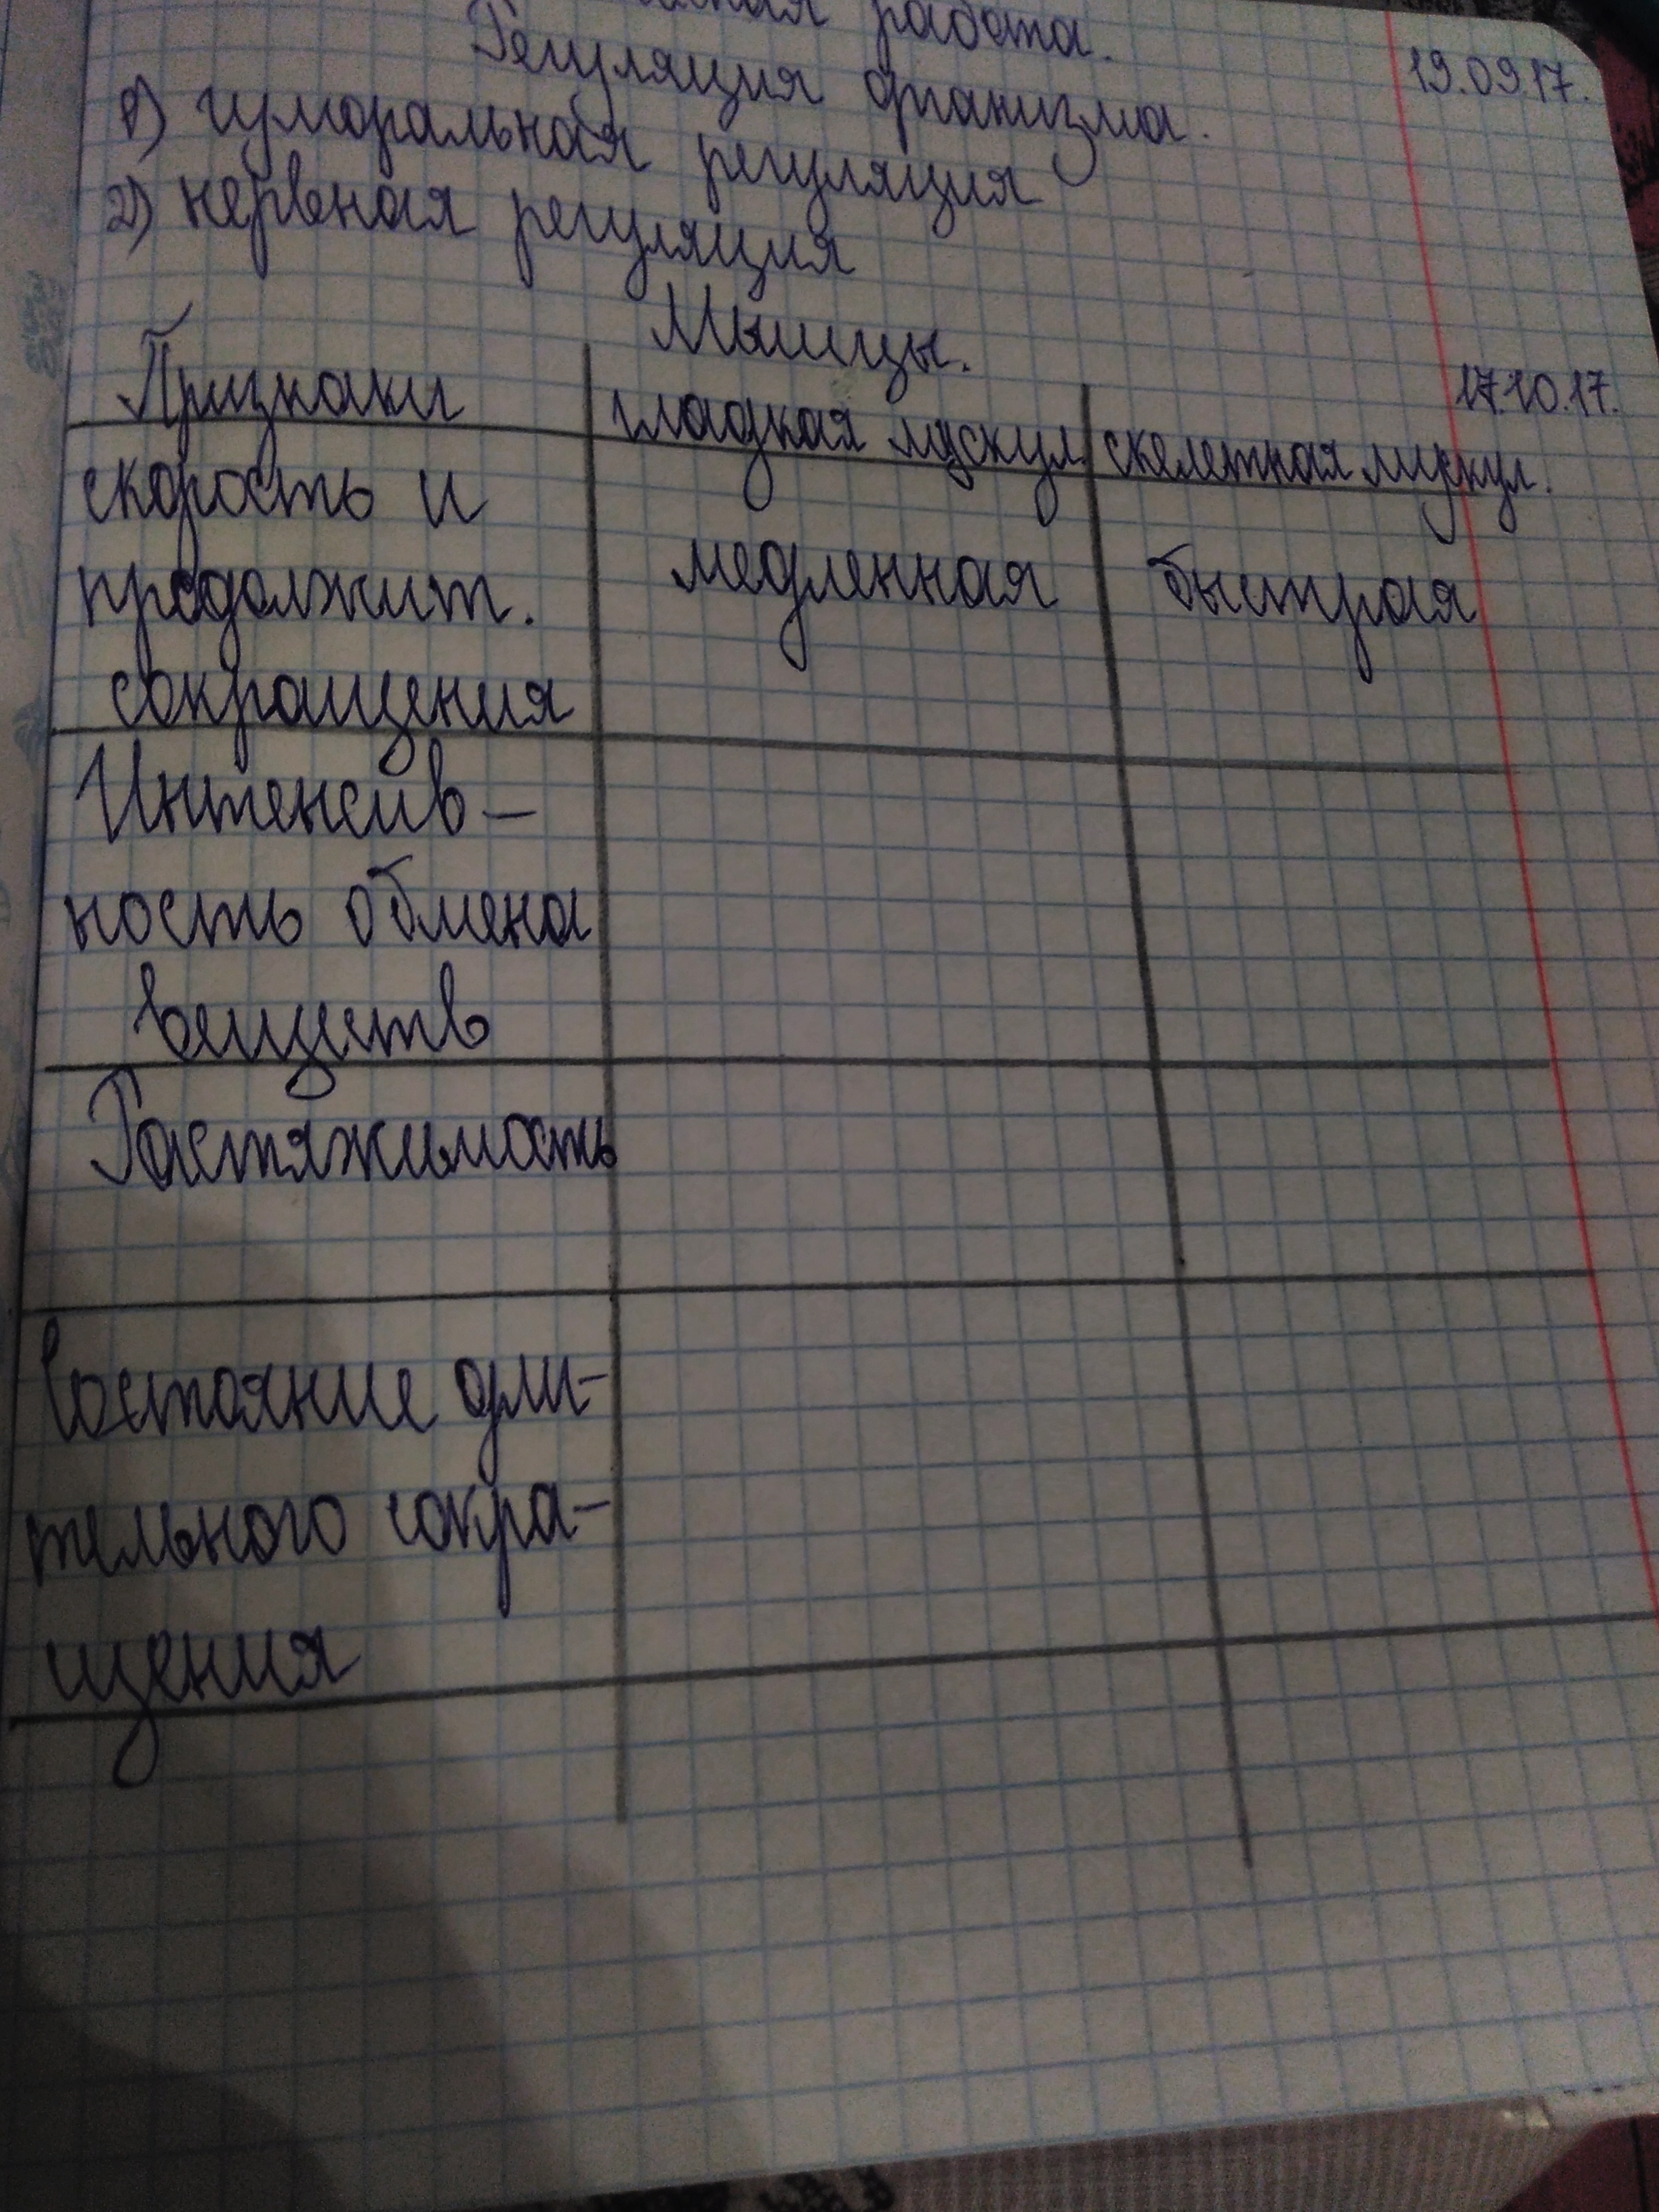 работа.
Регуляция организма. 19.09.17.
1) гуморальная регуляция
2) нервная регуляция
Мышцы. 17.10.17.
Признаки гладкая мускул. скелетная мускул.
скорость и
продолжит. медленная быстрая
сокращения
Интенсив-
ность обмена
веществ
Растяжимость
Состояние дли-
тельного сокра-
щения